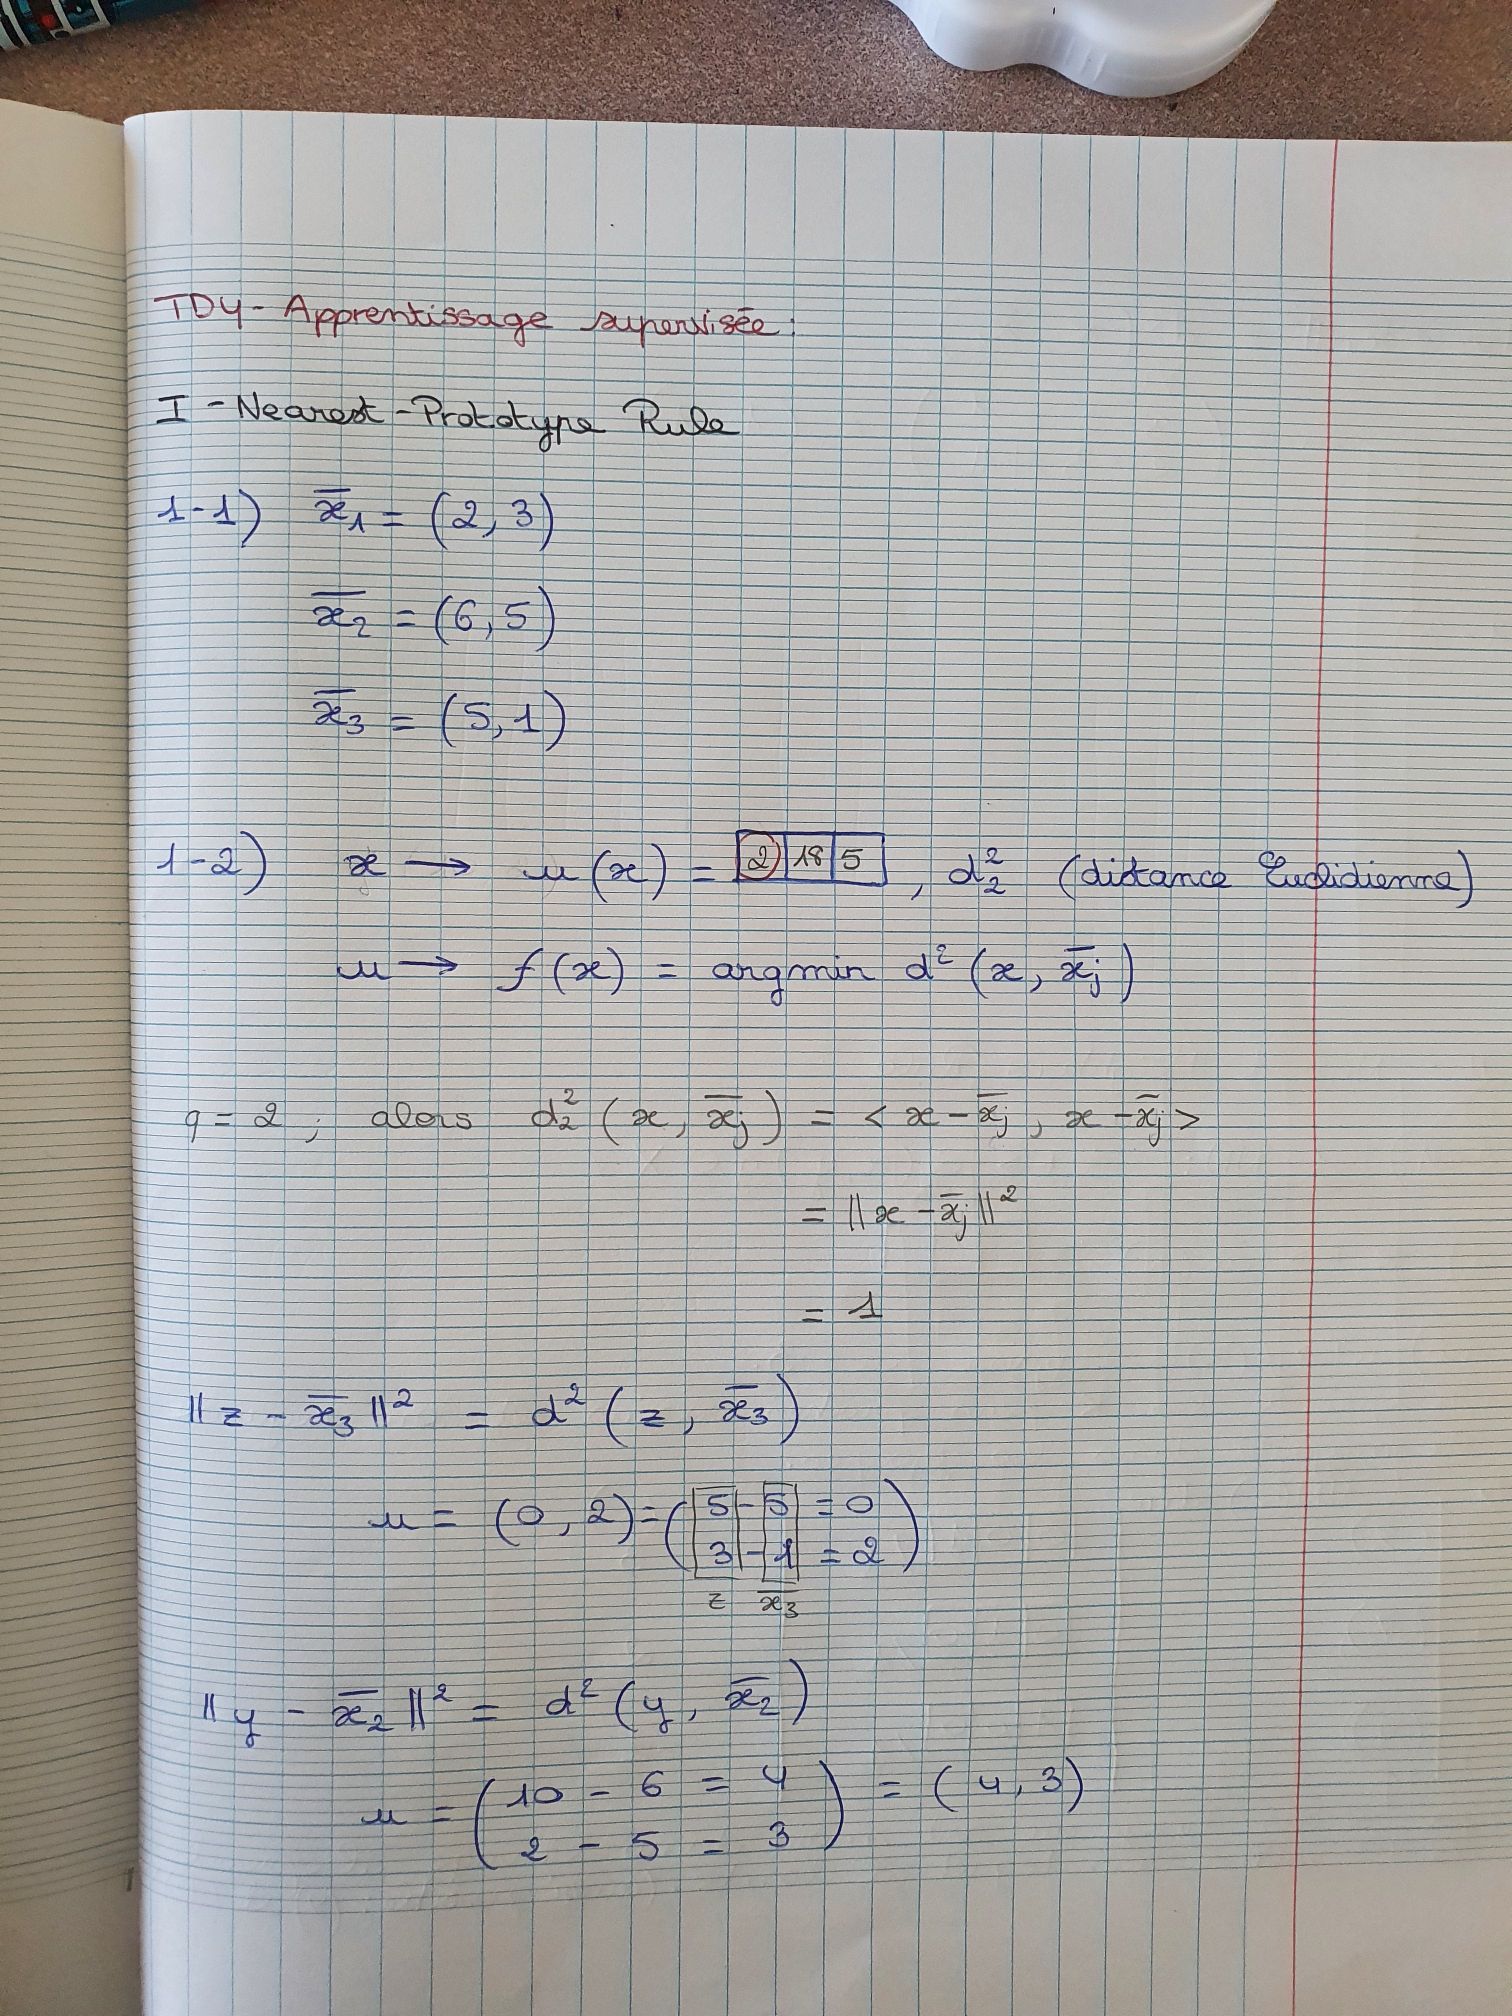 TD4 - Apprentissage supervisée :
I - Nearest - Prototype Rule
1-1) x̄₁ = (2, 3)
x̄₂ = (6, 5)
x̄₃ = (5, 1)
1-2) x → u(x) = 2 | 18 | 5 , d₂² (distance Euclidienne)
u → f(x) = argmin d² (x, x̄ⱼ)
q = 2 ; alors d₂² (x, x̄ⱼ) = < x - x̄ⱼ , x - x̄ⱼ >
= || x - x̄ⱼ ||²
= 1
|| z - x̄₃ ||² = d² (z, x̄₃)
u = (0, 2) = ( 5 - 5 = 0
3 - 1 = 2 )
z x̄₃
|| y - x̄₂ ||² = d² (y, x̄₂)
u = ( 10 - 6 = 4
2 - 5 = 3 ) = (4, 3)